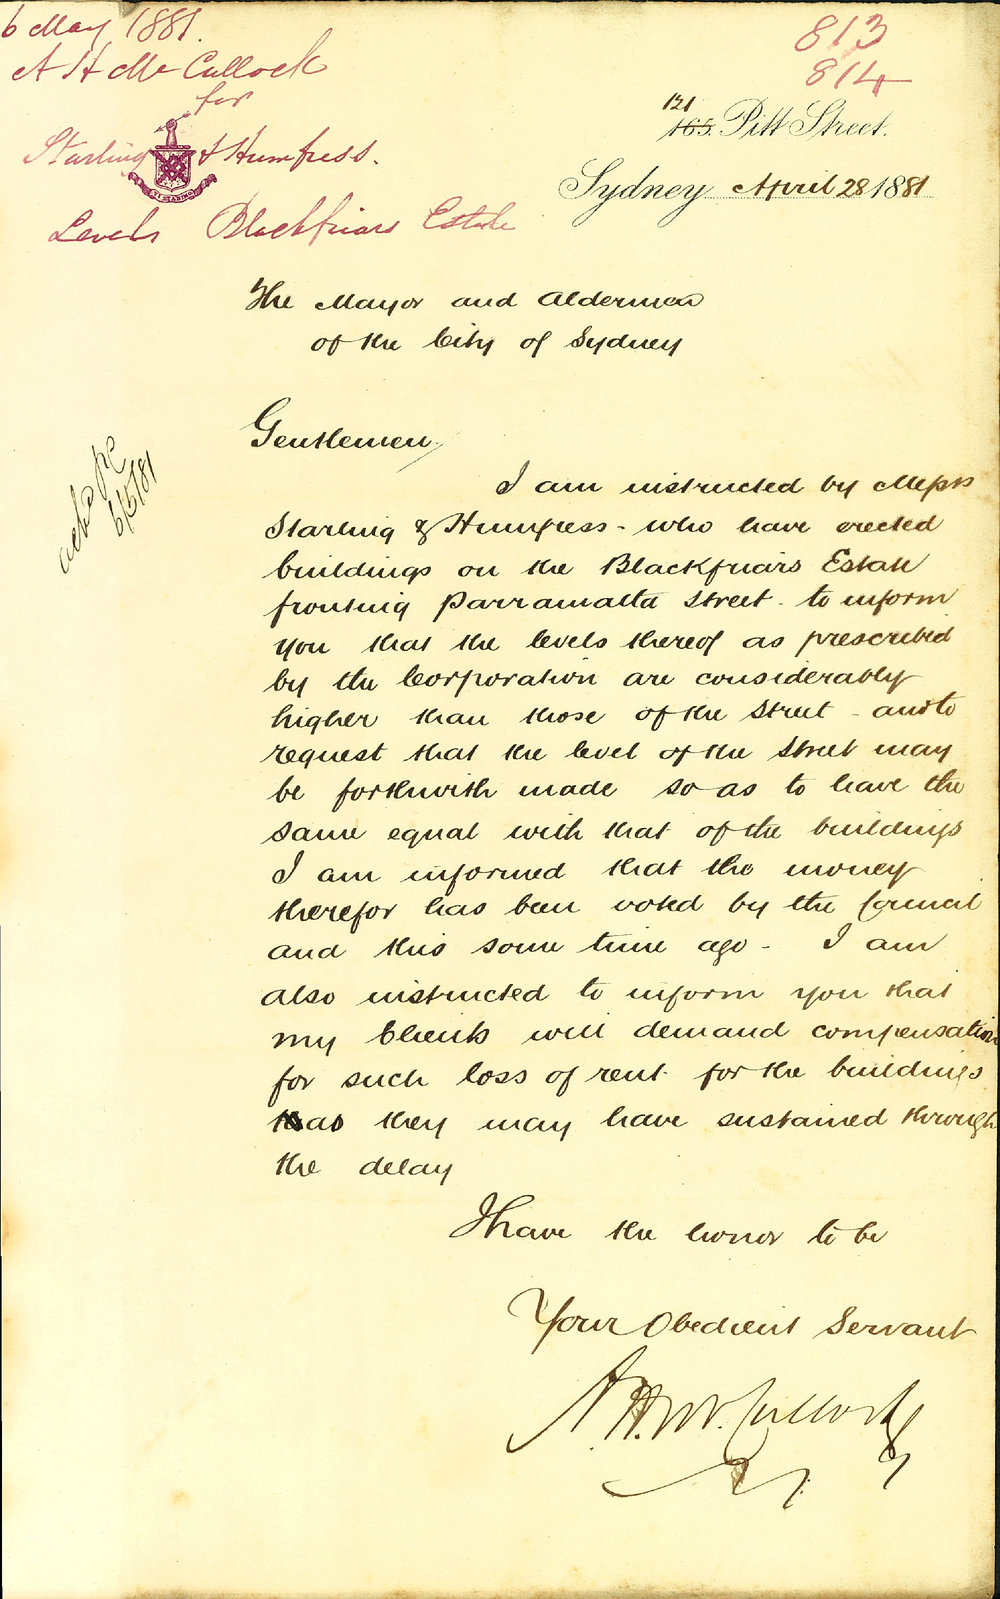 6 May 1881.
A H Mc Cullock
for
Starling & Humfress.
Levels Blackfriars Estate
813
814
121
165. Pitt Street.
Sydney April 28 1881
The Mayor and Aldermen
of the City of Sydney
Gentlemen,
ackd
6/5/81
I am instructed by Messrs
Starling & Humfress - who have erected
buildings on the Blackfriars Estate
fronting Parramatta Street - to inform
you that the levels thereof as prescribed
by the Corporation are considerably
higher than those of the Street - and to
request that the level of the Street may
be forthwith made so as to leave the
same equal with that of the buildings
I am informed that the money
therefor has been voted by the Council
and this some time ago - I am
also instructed to inform you that
my Clients will demand compensation
for such loss of rent for the buildings
as they may have sustained through
the delay
I have the honor to be
Your Obedient Servant
A. H. McCullock